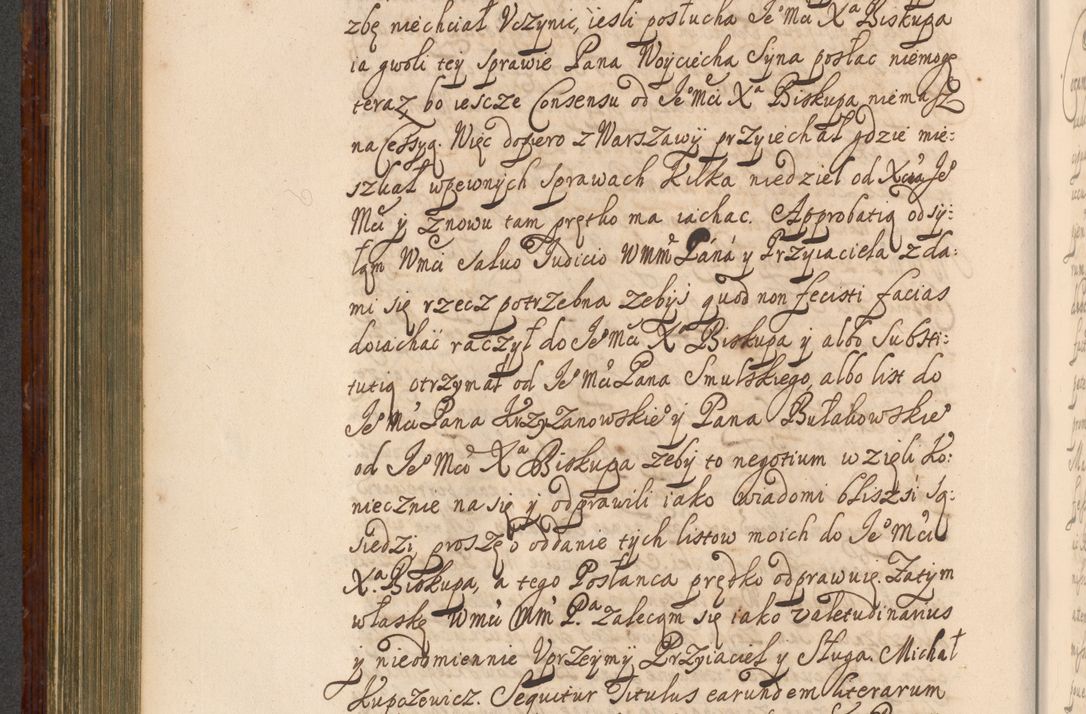 zbę niechciał Vczynic, iesli posłucha Je° Mci Xª Biskupa
ia gwoli tey sprawie Pana Woyciecha Syna posłac niemogę
teraz bo iescze Consensu od Je° Mci Xª Biskupa niemasz
na Cessyą. Więc dopiero z Warszawÿ przyiechał gdzie mie:
szkał wpewnÿch sprawach Kilka niedziel od Xcia Je°
Mci ÿ znowu tam prętko ma iachac. Approbatią odsÿ:
łąm Wmci Saluo Iudicio WMM Páná y Przyiaciela zda:
mi się rzecz potrzebna zebÿs quod non fecisti facias
doiachać raczył do Je° Mci Xª Biskupa y albo Substi:
tutią otrzymał od Je° Mci Pana Smulskiego, albo list do
Je° Mci Pana Krzyzanowskie° y Pana Bułakowskie°
od Je° Mci Xª Biskupa zeby to negotium wzięli ko:
niecznie na się y odprawili iako wiadomi bliszsi są:
siedzi, proszę o oddanie tych listow moich do Je° Mci
Xª. Biskupa, a tego Posłanca prędko odprawuię. Zatym
właskę Wmci MM Pª. zalecąm się iako valetudinarius
y nieodmiennie Vprzeymÿ Przyiaciel y Sługa. Michał
Kupozewicz. Sequitur Titulus earundem literarum